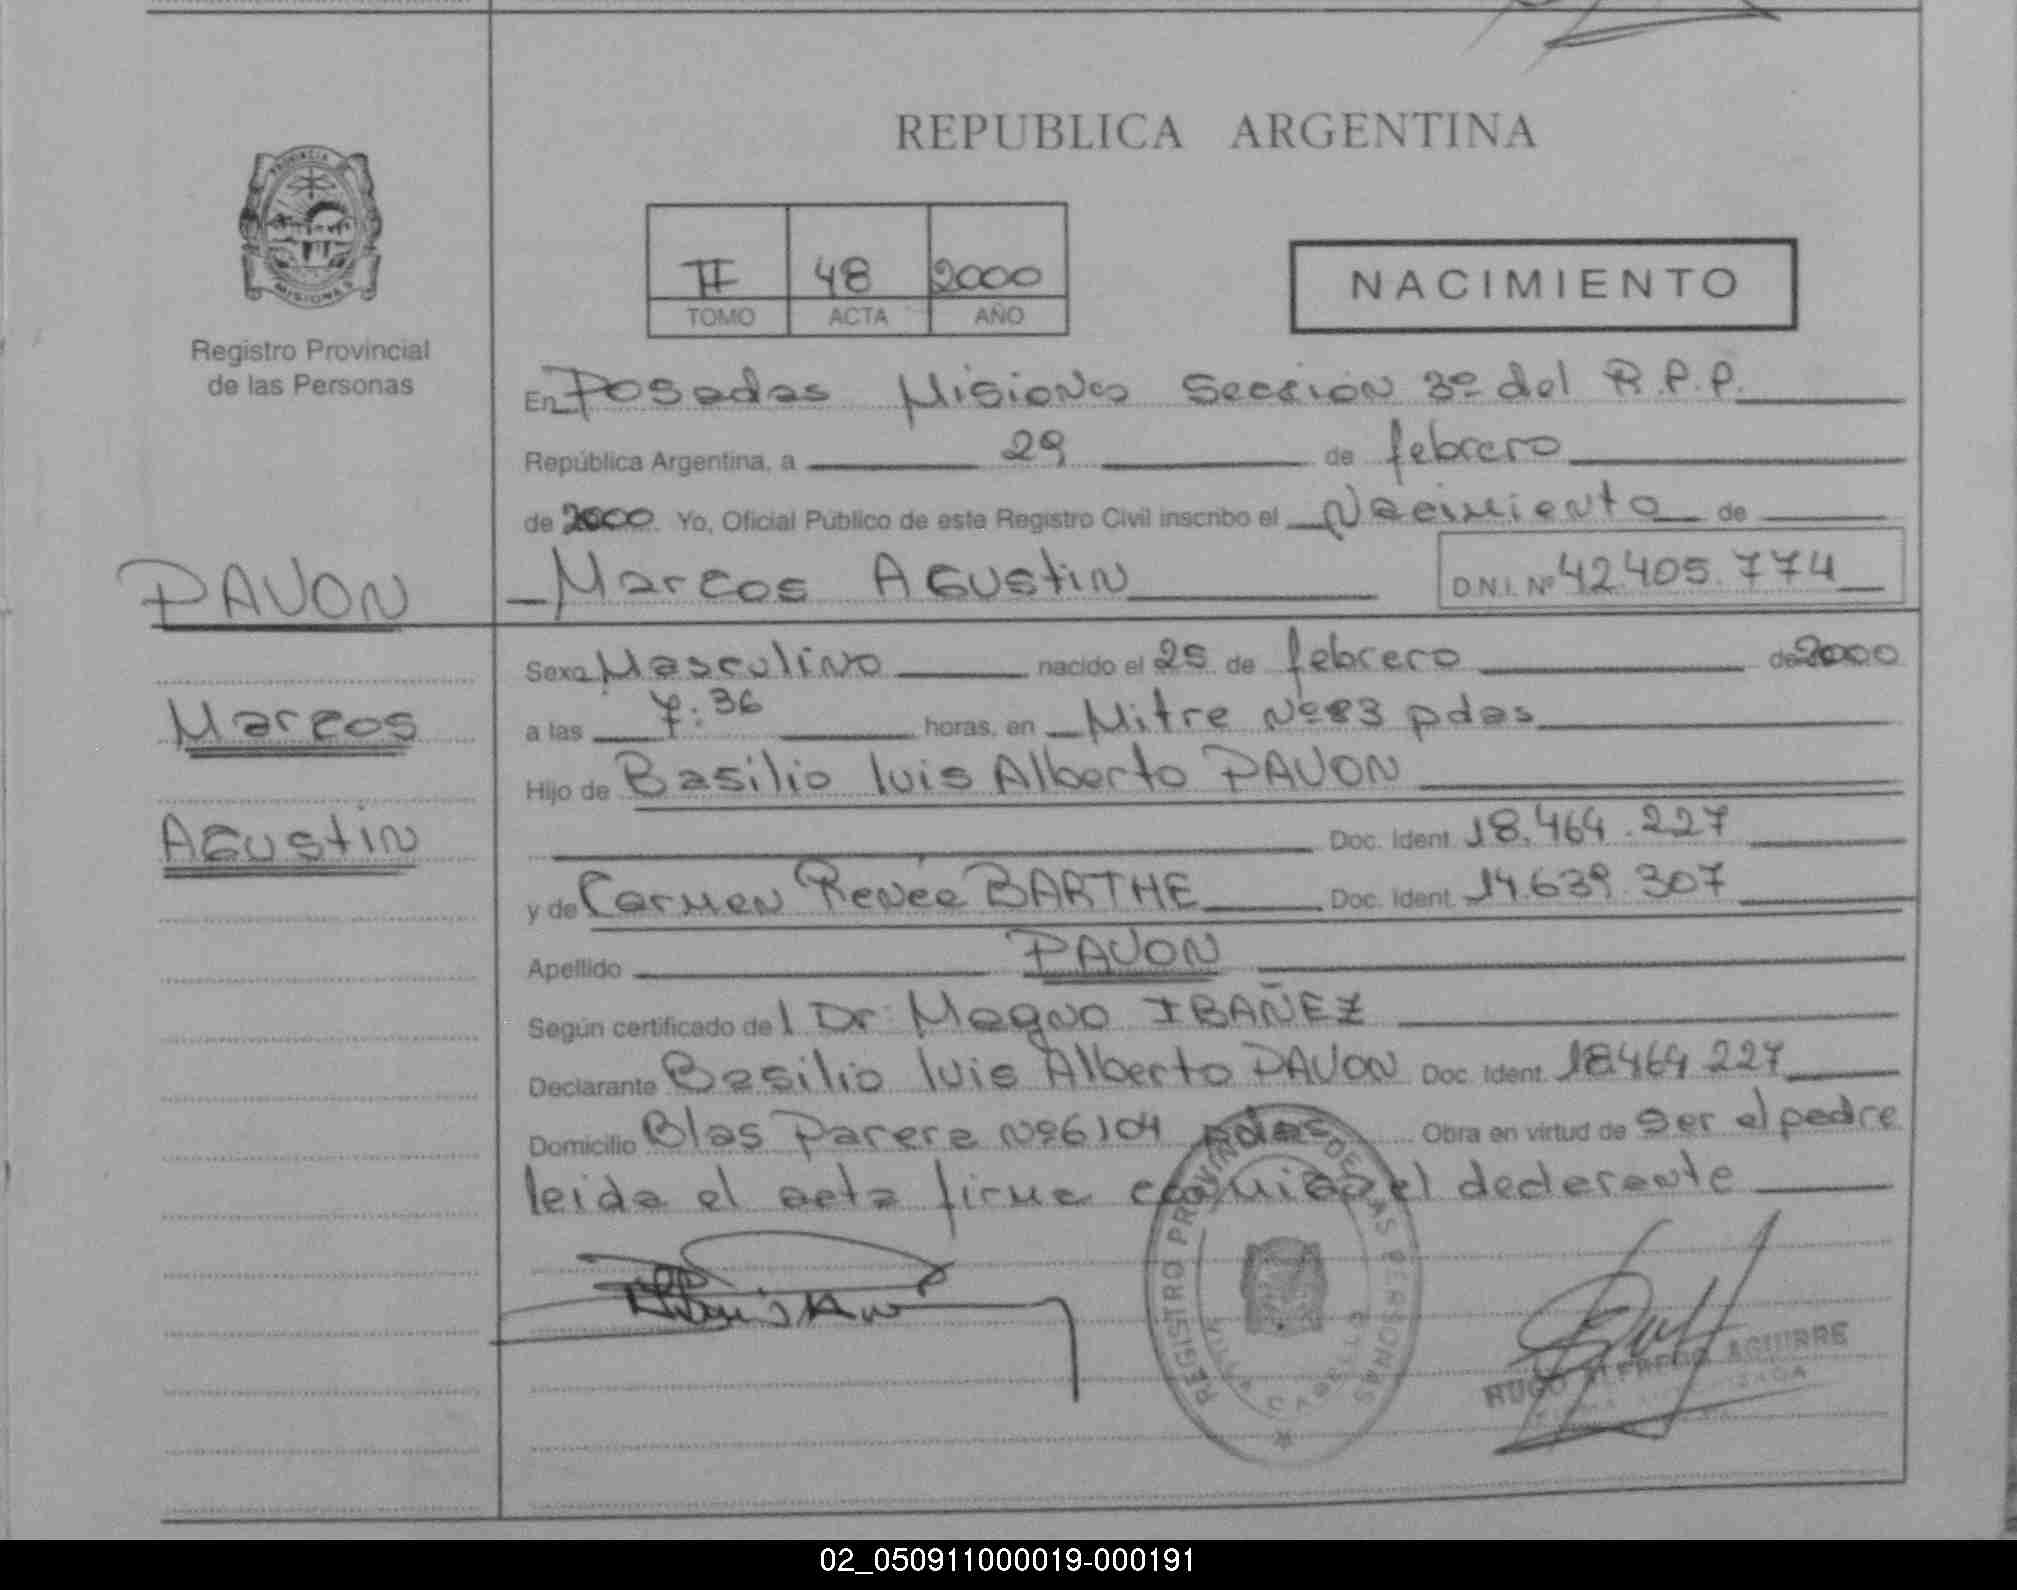 REPUBLICA ARGENTINA
PROVINCIA
MISIONES
Registro Provincial
de las Personas
II 48 2000
TOMO ACTA AÑO
NACIMIENTO
En Posadas Misiones Sección 3º del R.P.P.
República Argentina, a 29 de febrero
de 2000 Yo, Oficial Público de este Registro Civil inscribo el Nacimiento de
Marcos AGUstiN D.N.I. Nº 42.405.774
PAVON
Marcos
AGUstiN
Sexo Masculino nacido el 25 de febrero de 2000
a las 7:36 horas, en Mitre Nº83 pdas
Hijo de Basilio luis Alberto PAVON
Doc. Ident. 18.464.227
y de Carmen Renée BARTHE Doc. Ident. 14.639.307
Apellido PAVON
Según certificado del Dr. Magno IBAÑEZ
Declarante Basilio luis Alberto PAVON Doc. Ident. 18464 227
Domicilio Blas Parera Nº6104 pdas Obra en virtud de ser el padre
leida el acta firma conmigo el declarante
REGISTRO PROVINCIAL DE LAS PERSONAS
HUGO ALFREDO AGUIRRE
02_050911000019-000191